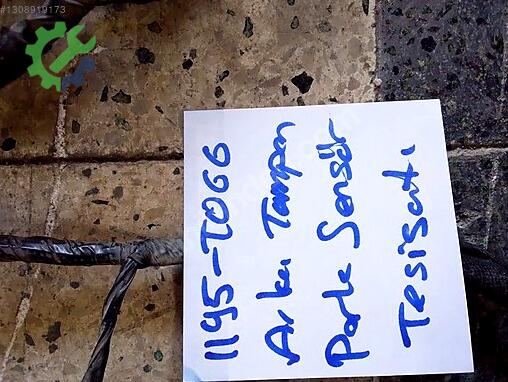 #1308919173
1195-TOGG
Arka Tampon
Park Sensör
Tesisatı